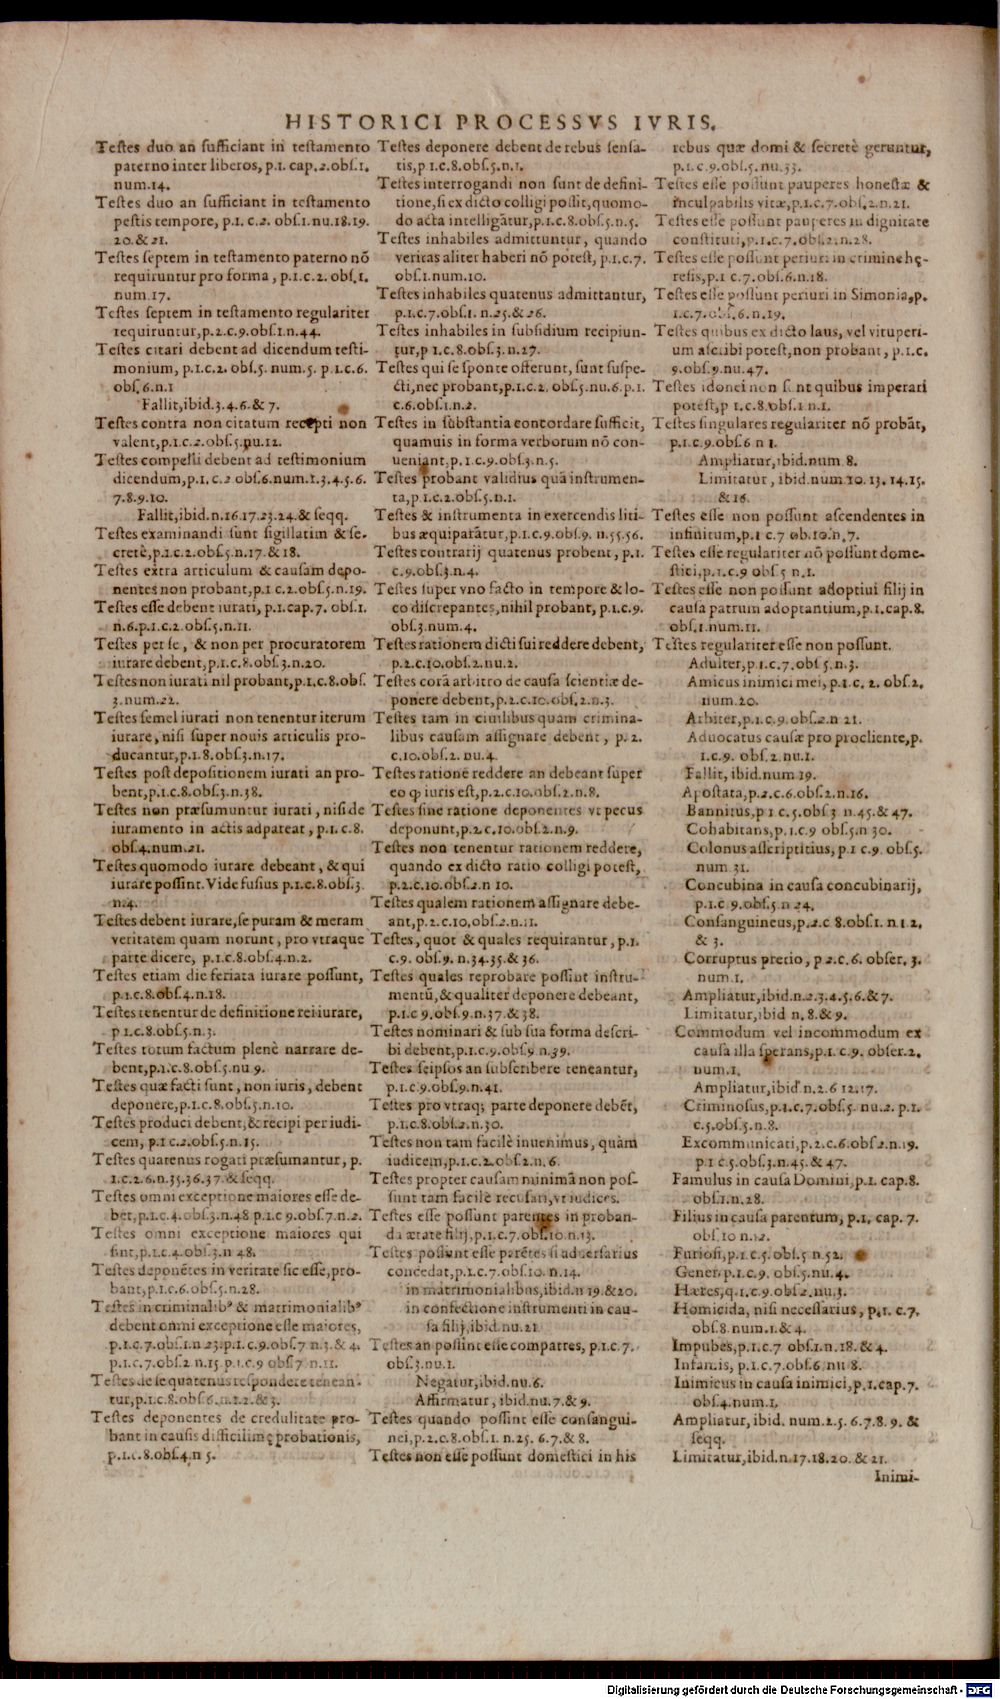 HISTORICI PROCESSVS IVRIS.
Testes duo an sufficiant in testamento
paterno inter liberos, p.1. cap.2.obs.1.
num.14.
Testes duo an sufficiant in testamento
pestis tempore, p.1. c.2. obs.1.nu.18.19.
20.& 21.
Testes septem in testamento paterno nõ
requiruntur pro forma, p.1.c.2. obs.1.
num.17.
Testes septem in testamento regulariter
requiruntur,p.2.c.9.obs.1.n.44.
Testes citari debent ad dicendum testi-
monium, p.1.c.2. obs.5. num.5. p.1.c.6.
obs.6.n.1
Fallit,ibid.3.4.6.& 7.
Testes contra non citatum recepti non
valent,p.1.c.2.obs.5.nu.12.
Testes compelli debent ad testimonium
dicendum,p.1. c.2 obs.6.num.1.3.4.5.6.
7.8.9.10.
Fallit,ibid.n.16.17.23.24.& seqq.
Testes examinandi sunt sigillatim & se-
cretè,p.1.c.2.obs.5.n.17.& 18.
Testes extra articulum & causam depo-
nentes non probant,p.1 c.2.obs.5.n.19.
Testes esse debent iurati, p.1.cap.7. obs.1.
n.6.p.1.c.2.obs.5.n.11.
Testes per se, & non per procuratorem
iurare debent,p.1.c.8.obs.3.n.20.
Testes non iurati nil probant,p.1.c.8.obs.
3.num.22.
Testes semel iurati non tenentur iterum
iurare, nisi super nouis articulis pro-
ducantur,p.1.8.obs.3.n.17.
Testes post depositionem iurati an pro-
bent,p.1.c.8.obs.3.n.38.
Testes non præsumuntur iurati, nisi de
iuramento in actis adpareat, p.1.c.8.
obs.4.num.21.
Testes quomodo iurare debeant, & qui
iurare possint. Vide fusius p.1.c.8.obs.3.
n.4.
Testes debent iurare,se puram & meram
veritatem quam norunt, pro vtraque
parte dicere, p.1.c.8.obs.4.n.2.
Testes etiam die feriata iurare possunt,
p.1.c.8.obs.4.n.18.
Testes tenentur de definitione rei iurare,
p 1.c.8.obs.5.n.3.
Testes totum factum plenè narrare de-
bent,p.1.c.8.obs.5.nu 9.
Testes quæ facti sunt, non iuris, debent
deponere,p.1.c.8.obs.5.n.10.
Testes produci debent,& recipi per iudi-
cem, p.1 c.2.obs.5.n.15.
Testes quatenus rogati præsumantur, p.
1.c.2.6.n.35.36.37.& seqq.
Testes omni exceptione maiores esse de-
bet,p.1.c.4.obs.3.n.48 p.1.c 9.obs.7.n.2.
Testes omni exceptione maiores qui
sint,p.1.c.4.obs.3.n 48.
Testes deponẽtes in veritate sic esse,pro-
bant,p.1.c.6.obs.5.n.28.
Testes in criminalib⁹ & matrimonialib⁹
debent omni exceptione esse maiores,
p.1.c.7.obs.1.n.23.p.1.c.9.obs.7 n.3.& 4.
p.1.c.7.obs.2 n.15.p.1.c.9 obs.7 n.11.
Testes de se quatenus respondere tenean-
tur,p.1.c.8.obs.6.n.1.2.& 3.
Testes deponentes de credulitate pro-
bant in causis difficilimę probationis,
p.1.c.8.obs.4.n 5.
Testes deponere debent de rebus sensa-
tis,p 1.c.8.obs.5.n.1.
Testes interrogandi non sunt de defini-
tione,si ex dicto colligi possit,quomo-
do acta intelligãtur,p.1.c.8.obs.5.n.5.
Testes inhabiles admittuntur, quando
veritas aliter haberi nõ potest, p.1.c.7.
obs.1.num.10.
Testes inhabiles quatenus admittantur,
p.1.c.7.obs.1. n.25.& 26.
Testes inhabiles in subsidium recipiun-
tur,p 1.c.8.obs.3.n.27.
Testes qui se sponte offerunt, sunt suspe-
cti,nec probant,p.1.c.2. obs.5.nu.6.p.1.
c.6.obs.1.n.2.
Testes in substantia concordare sufficit,
quamuis in forma verborum nõ con-
ueniant,p.1.c.9.obs.3.n.5.
Testes probant validius quã instrumen-
ta,p.1.c.2.obs.5.n.1.
Testes & instrumenta in exercendis liti-
bus æquiparãtur,p.1.c.9.obs.9. n.55.56.
Testes contrarij quatenus probent, p.1.
c.9.obs.3.n.4.
Testes super vno facto in tempore & lo-
co discrepantes,nihil probant, p.1.c.9.
obs.3.num.4.
Testes rationem dicti sui reddere debent,
p.2.c.10.obs.2.nu.2.
Testes corã arbitro de causa scientiæ de-
ponere debent,p.2.c.10.obs.2.n.3.
Testes tam in ciuilibus quam crimina-
libus causam assignare debent, p.2.
c.10.obs.2. nu.4.
Testes rationē reddere an debeant super
eo ꝙ iuris est,p.2.c.10.obs.2.n.8.
Testes sine ratione deponentes vt pecus
deponunt,p.2.c.10.obs.2.n.9.
Testes non tenentur rationem reddere,
quando ex dicto ratio colligi potest,
p.2.c.10.obs.2.n 10.
Testes qualem rationem assignare debe-
ant,p.2.c.10.obs.2.n.11.
Testes, quot & quales requirantur, p.1.
c.9. obs.9. n.34.35.& 36.
Testes quales reprobare possint instru-
mentũ,& qualiter deponere debeant,
p.1.c 9.obs.9.n.37.& 38.
Testes nominari & sub sua forma descri-
bi debent,p.1.c.9.obs.9 n.39.
Testes seipsos an subscribere teneantur,
p.1.c.9.obs.9.n.41.
Testes pro vtraq; parte deponere debẽt,
p.1.c.8.obs.2.n.30.
Testes non tam facilè inuenimus, quàm
iudicem,p.1.c.2.obs.2.n.6.
Testes propter causam minimã non pos-
sunt tam facilè recusari,vt iudices.
Testes esse possunt parentes in proban-
da ætate filij,p.1.c.7.obs.10.n.13.
Testes possunt esse parẽtes si aduersarius
concedat,p.1.c.7.obs.10. n.14.
in matrimonialibus,ibid.n 19.&20.
in confectione instrumenti in cau-
sa filij,ibid.nu.21
Testes an possint esse compatres, p.1.c.7.
obs.3.nu.1.
Negatur,ibid.nu.6.
Affirmatur, ibid.nu.7.& 9.
Testes quando possint esse consangui-
nei,p.2.c.8.obs.1. n.25. 6.7.& 8.
Testes non esse possunt domestici in his
rebus quæ domi & secretè geruntur,
p.1.c.9.obs.5.nu.33.
Testes esse possunt pauperes honestæ &
inculpabilis vitæ,p.1.c.7.obs.2.n.21.
Testes esse possunt pauperes in dignitate
constituti,p.1.c.7.obs.2.n.28.
Testes esse possunt periuri in crimine hę-
resis,p.1 c.7.obs.6.n.18.
Testes esse possunt periuri in Simonia,p.
1.c.7.obs.6.n.19.
Testes quibus ex dicto laus, vel vituperi-
um ascribi potest,non probant, p.1.c.
9.obs.9.nu.47.
Testes idonei non sunt quibus imperari
potest,p 1.c.8.obs.1 n.1.
Testes singulares regulariter nõ probãt,
p.1.c.9.obs.6 n 1.
Ampliatur,ibid.num 8.
Limitatur, ibid.num 10. 13. 14.15.
& 16.
Testes esse non possunt ascendentes in
infinitum,p.1 c.7 ob.10.n.7.
Testes esse regulariter nõ possunt dome-
stici,p.1.c.9 obs 5 n.1.
Testes esse non possunt adoptiui filij in
causa patrum adoptantium,p.1.cap.8.
obs.1.num.11.
Testes regulariter esse non possunt.
Adulter,p.1.c.7.obs 5.n.3.
Amicus inimici mei, p.1.c. 2. obs.2.
num.20.
Arbiter,p.1.c.9.obs.2.n 21.
Aduocatus causæ pro procliente,p.
1.c.9. obs.2.nu.1.
Fallit, ibid.num 19.
Apostata,p.2.c.6.obs.2.n.16.
Bannitus,p 1 c.5.obs 3 n.45.& 47.
Cohabitans,p.1.c.9 obs.5.n 30.
Colonus ascriptitius,p.1 c.9. obs.5.
num.31.
Concubina in causa concubinarij,
p.1.c 9.obs.5.n 24.
Consanguineus,p.2.c 8.obs.1. n.1 2.
& 3.
Corruptus precio, p 2.c.6. obser. 3.
num.1.
Ampliatur,ibid.n.2.3.4.5.6.& 7.
Limitatur,ibid n. 8.& 9.
Commodum vel incommodum ex
causa illa sperans,p.1.c.9. obser.2.
num.1.
Ampliatur,ibid n.2.6 12.17.
Criminosus,p.1.c.7.obs.5. nu.2. p.1.
c.5.obs.3.n.8.
Excommunicati,p.2.c.6.obs.2.n.19.
p.1 c.5.obs.3.n.45.& 47.
Famulus in causa Domini,p.1. cap.8.
obs.1.n.28.
Filius in causa parentum, p.1. cap. 7.
obs.10 n.12.
Furiosi,p.1.c.5.obs.5 n.52.
Gener, p.1.c.9. obs.5.nu.4.
Hæres,q.1.c.9.obs 2.nu.3.
Homicida, nisi necessarius, p.1. c.7.
obs.8.num.1.& 4.
Impubes,p.1.c.7 obs.1.n.18.& 4.
Infamis, p.1.c.7.obs.6.nu 8.
Inimicus in causa inimici,p.1.cap.7.
obs.4.num.1.
Ampliatur, ibid. num.2.5. 6.7.8. 9. &
seqq.
Limitatur,ibid.n.17.18.20.& 21.
Inimi-
Digitalisierung gefördert durch die Deutsche Forschungsgemeinschaft - DFG